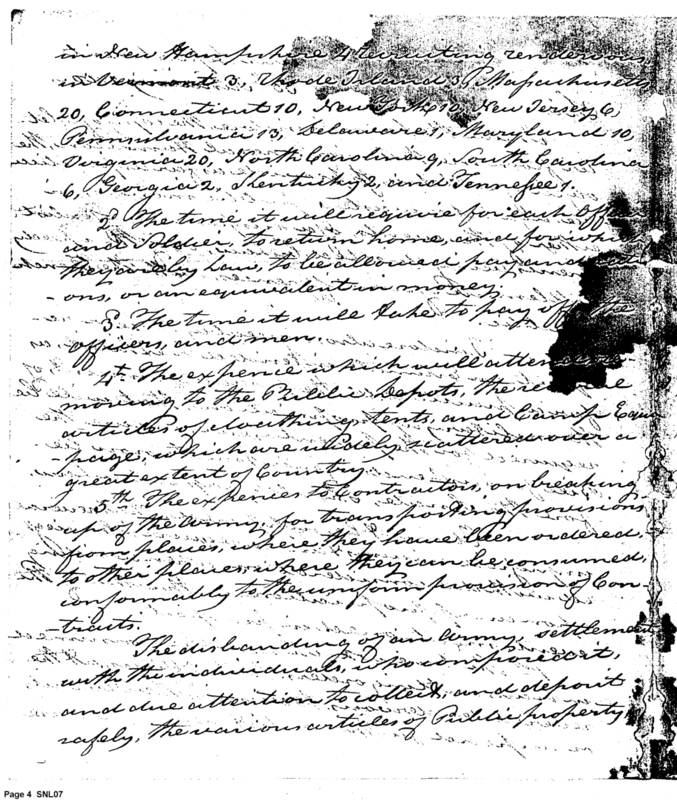 in New Hampshire 4 recruiting rendezvous
in Vermont 3, Rhode Island 3, Massachusetts
20, Connecticut 10, New York 10, New Jersey 6,
Pennsylvania 13, Delaware 1, Maryland 10,
Virginia 20, North Carolina 9, South Carolina
6, Georgia 2, Kentucky 2, and Tennessee 1.
2. The time it will require for each Officer
and Soldier, to return home, and for which
they are by Law, to be allowed pay and
-ons, or an equivalent in money.
3. The time it will take to pay off the
officers, and men.
4th The expence which will attend
moving to the Public Depots, the
articles of cloathing, tents, and Camp Equi
-page, which are widely scattered over a
great extent of Country
5th The expences to Contractors, on breaking
up of the Army, for transporting provisions
from places, where they have been ordered,
to other places, where they can be consumed,
conformably to the uniform provision of Con-
-tracts.
The disbanding of an Army, settlement
with the individuals, who composed it,
and due attention to collect, and deposit
safely, the various articles of Public property
Page 4 SNL07